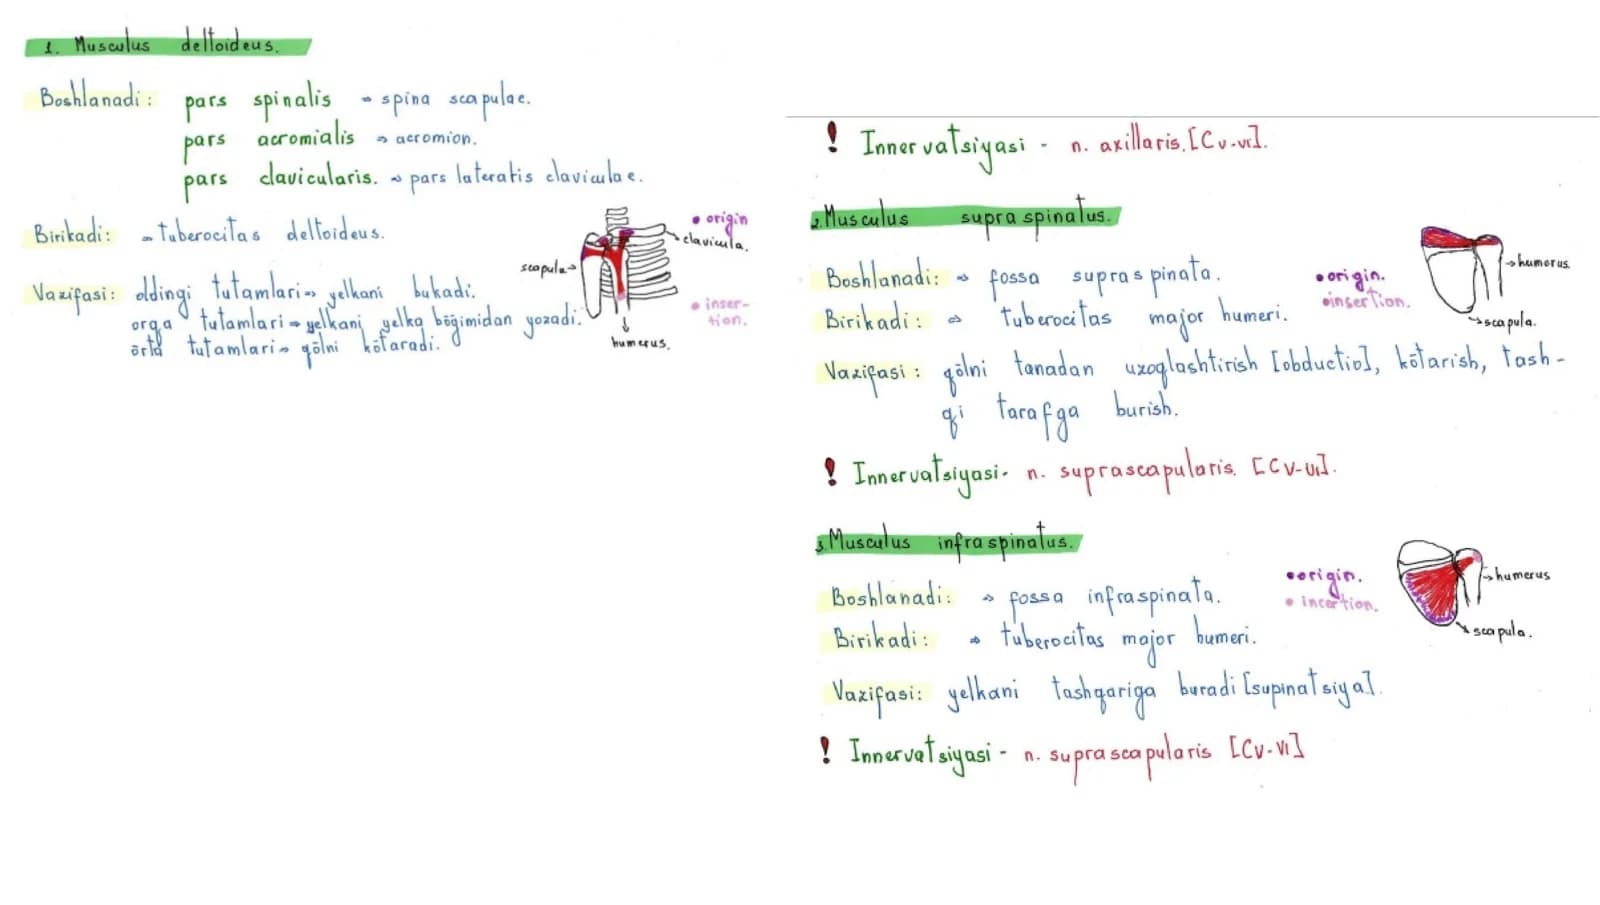 1. Musculus deltoideus.
Boshlanadi: pars spinalis ⇒ spina scapulae.
pars acromialis ⇒ acromion.
pars clavicularis. ⇒ pars lateralis claviculae.
Birikadi: ⇒ tuberocitas deltoideus.
• origin
clavicula.
scapula→
• inser-
tion.
humerus.
Vazifasi: oldingi tutamlari ⇒ yelkani bukadi.
orqa tutamlari ⇒ yelkani yelka bōģimidan yozadi.
ōrta tutamlari ⇒ qōlni kōtaradi.
! Innervatsiyasi - n. axillaris. [Cv-vı].
2. Musculus supraspinatus.
Boshlanadi: ⇒ fossa supraspinata.
Birikadi: ⇒ tuberocitas major humeri.
• origin.
• insertion.
→humerus.
→scapula.
Vazifasi: qōlni tanadan uzoqlashtirish [obductio], kōtarish, tash-
qi tarafga burish.
! Innervatsiyasi- n. suprascapularis. [Cv-vı].
3. Musculus infraspinatus.
Boshlanadi: ⇒ fossa infraspinata.
Birikadi: ⇒ tuberocitas major humeri.
• origin.
• incertion.
→humerus
→scapula.
Vazifasi: yelkani tashqariga buradi [supinatsiya].
! Innervatsiyasi - n. suprascapularis [Cv-vı]